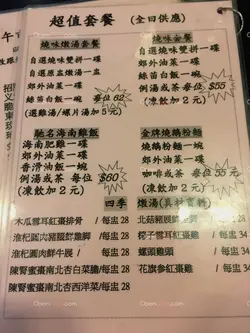 超值套餐 (全日供應)
燒味燉湯套餐
自選燒味雙拼一碟
自選原盅燉湯一盅
郊外油菜一碟
絲苗白飯一碗 每位62
(選雞湯/螺片湯加5元)
燒味套餐
自選燒味雙拼一碟
郊外油菜一碟
絲苗白飯一碗
例湯或茶 每位$55
(凍飲加2元)
馳名海南雞飯
海南肥雞一碟
郊外油菜一碟
香滑油飯一碗
例湯或茶 每位$60
(凍飲加2元)
金牌燒鵝粉麵
燒鵝粉麵一碗
郊外油菜一碟
咖啡或茶 每位55元
(凍飲加2元)
四季燉湯(真材實料)
木瓜雪耳紅棗排骨 / 每盅 28
淮杞圓肉豬腱鮮雞腳 / 每盅 28
淮杞圓肉鮮牛𦟌 / 每盅 28
陳腎蜜棗南北杏白菜膽/每盅 28
陳腎蜜棗南北杏西洋菜/每盅 28
北菇豬腱鮮雞腳
椰子雪耳紅棗雞 / 每盅 34
螺頭雞頭 / 每盅 34
花旗參紅棗雞 / 每盅 34